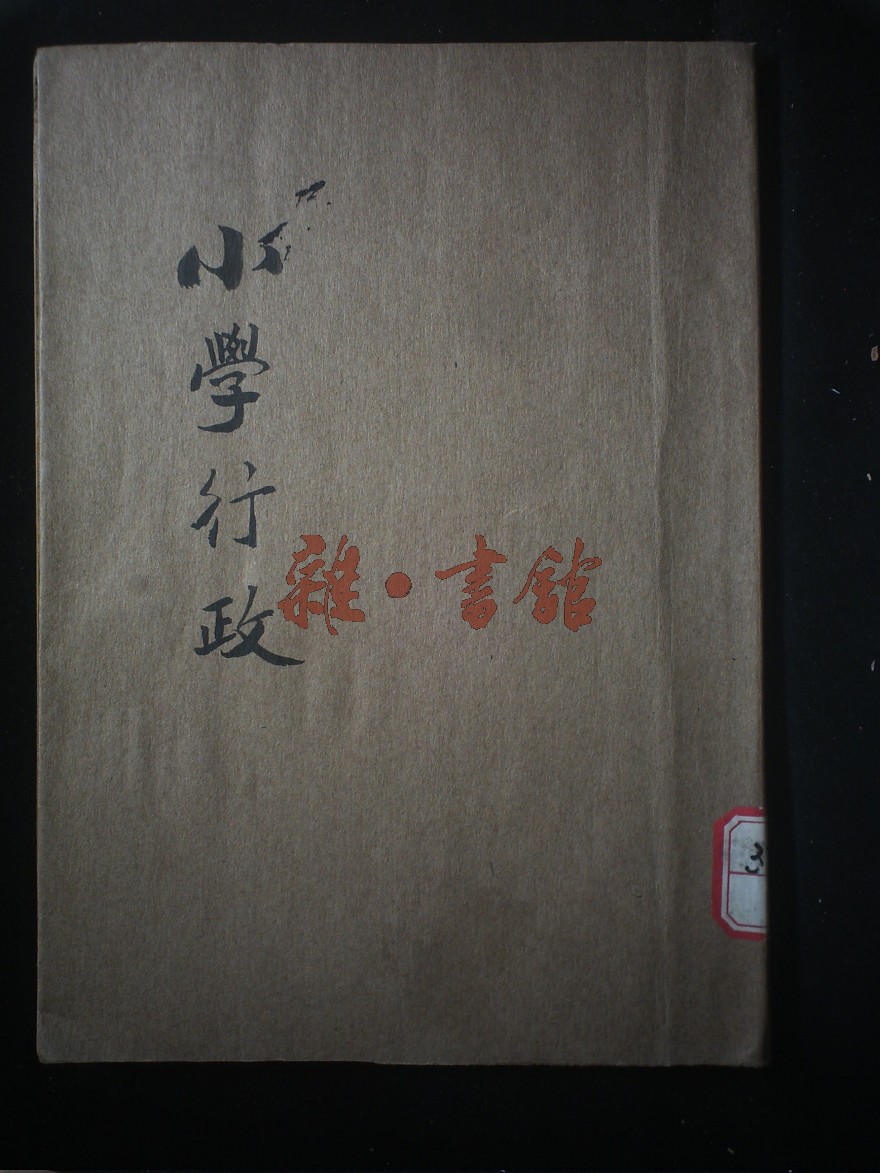 小學行政
雜·書館
3